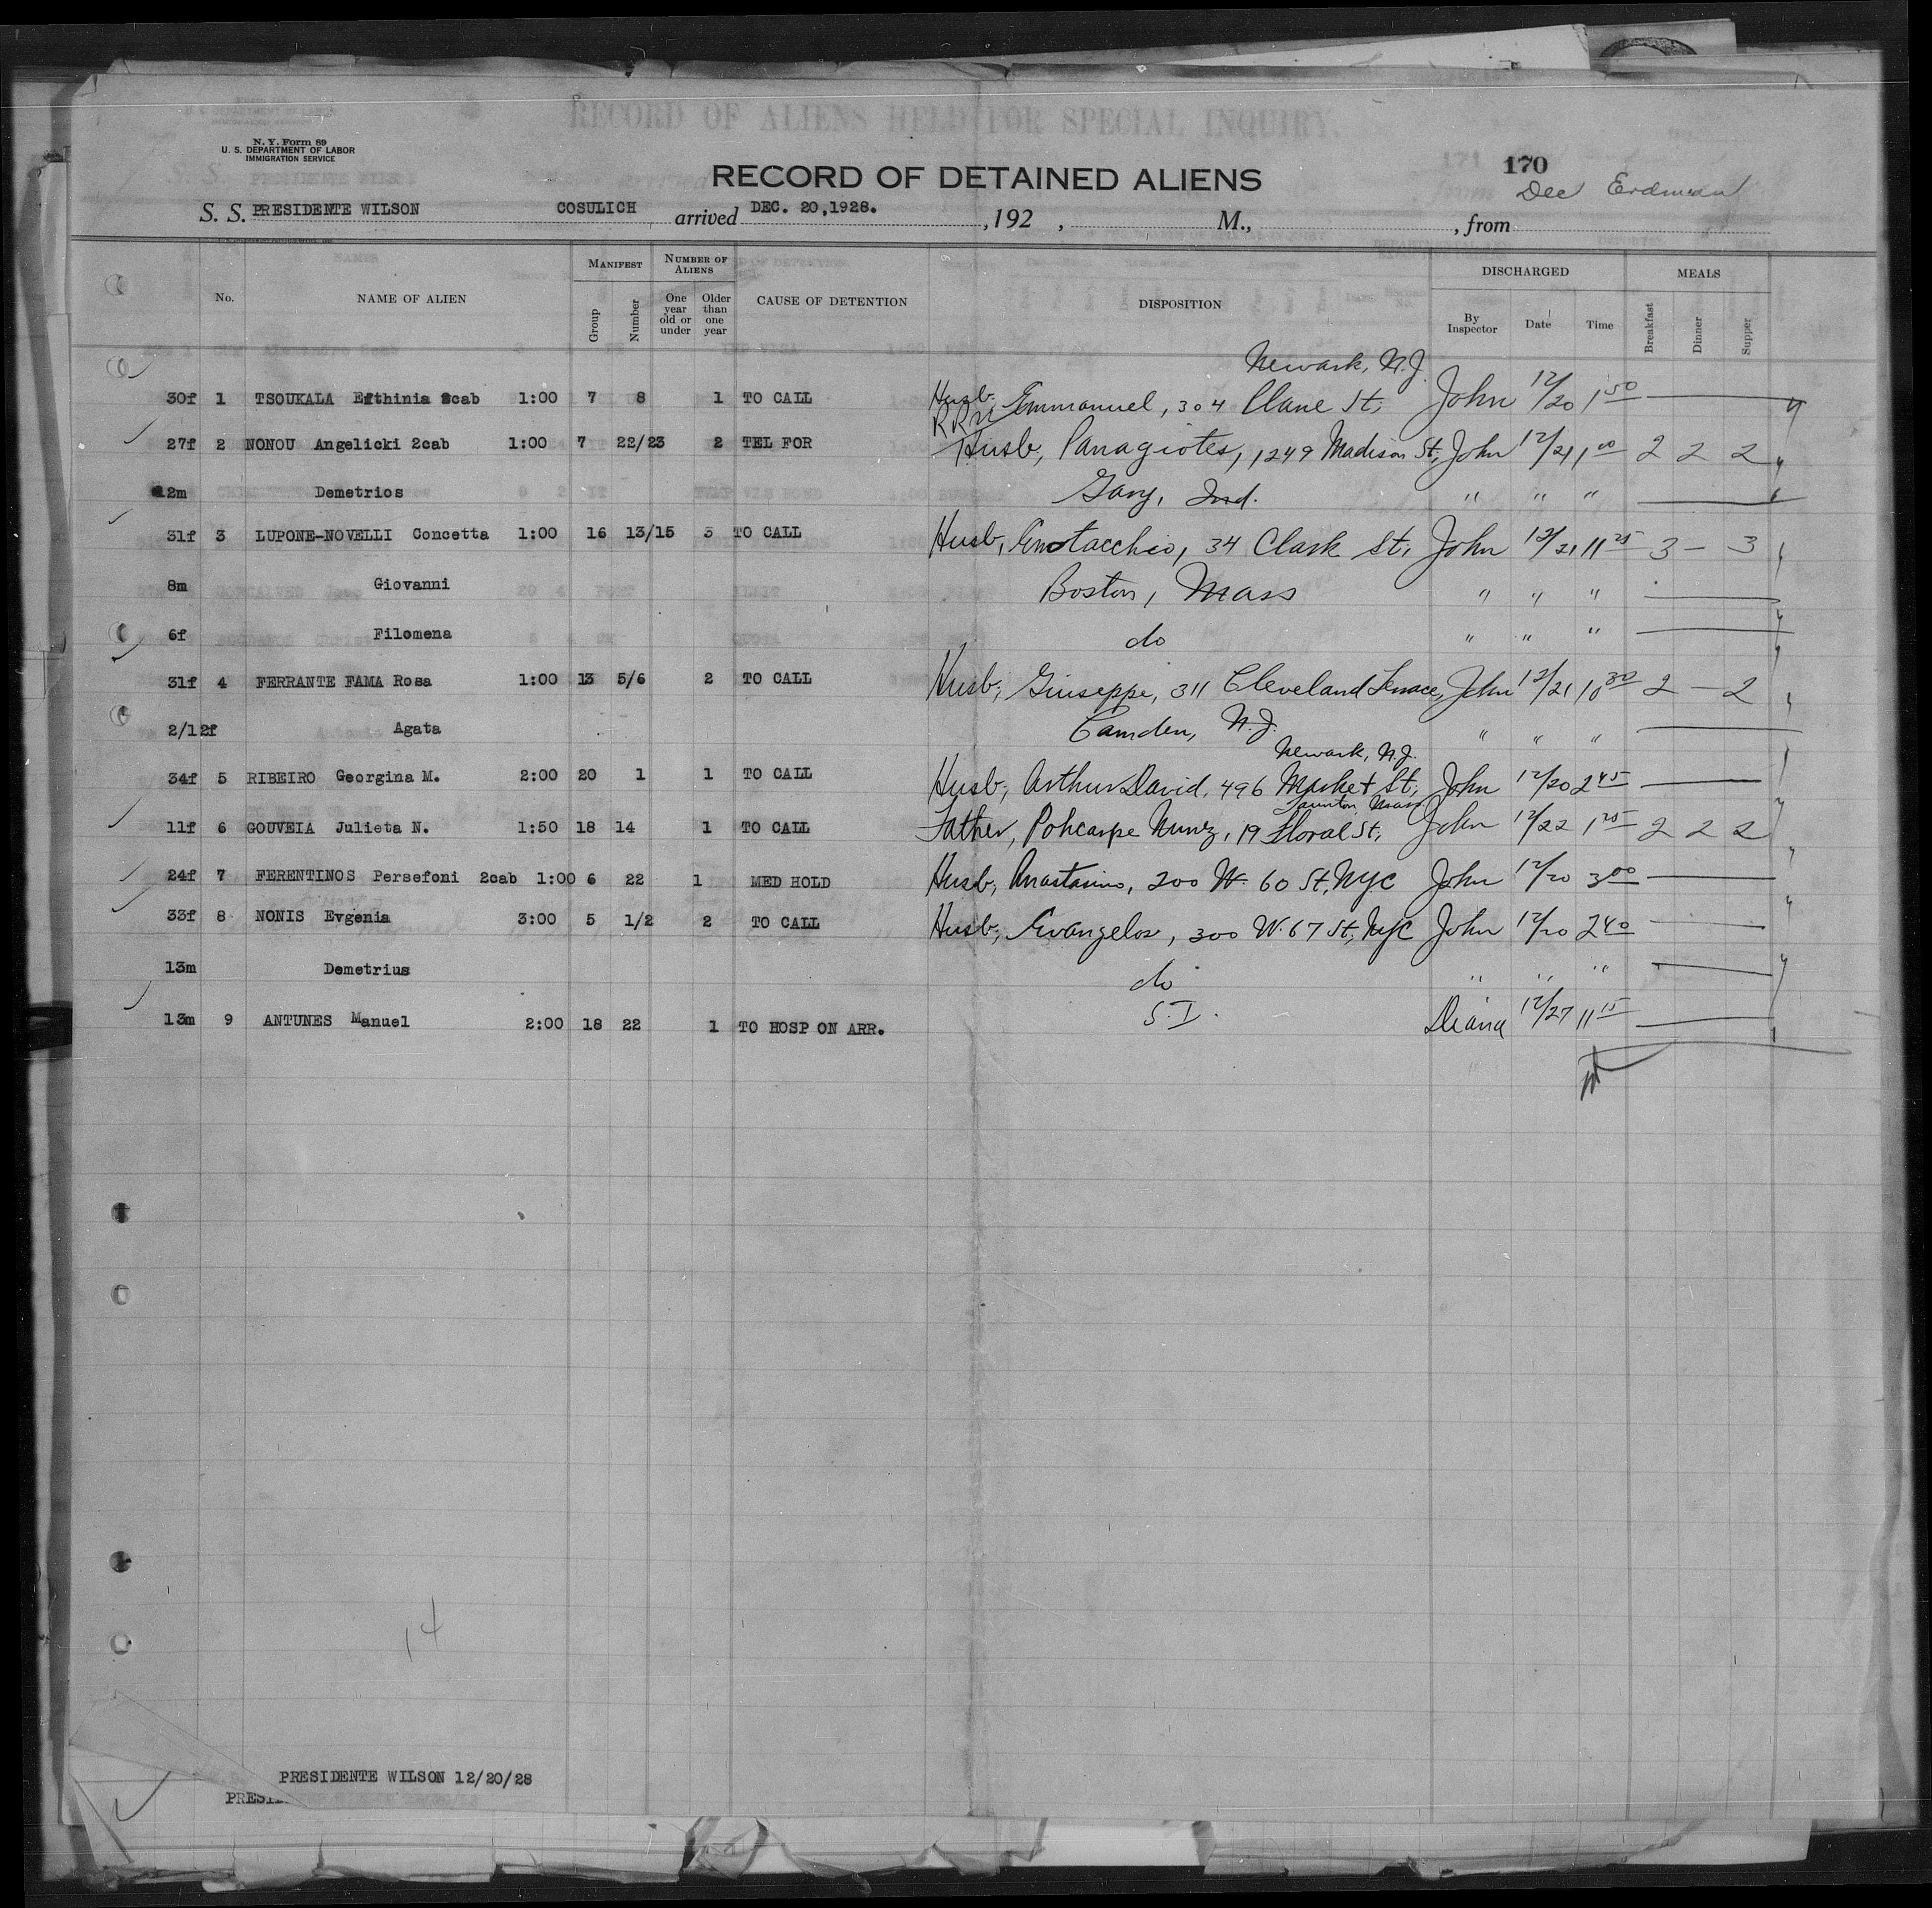 RECORD OF ALIENS HELD FOR SPECIAL INQUIRY.
N. Y. Form 89
U. S. DEPARTMENT OF LABOR
IMMIGRATION SERVICE
RECORD OF DETAINED ALIENS
171 170
Dec Erdman
S. S. PRESIDENTE WILSON COSULICH arrived DEC. 20,1928. ,192 , M., , from
No. NAME OF ALIEN MANIFEST Group Number NUMBER OF ALIENS One year old or under Older than one year CAUSE OF DETENTION DISPOSITION DISCHARGED By Inspector Date Time MEALS Breakfast Dinner Supper
Newark, N.J.
30f 1 TSOUKALA Efthinia 2cab 1:00 7 8 1 TO CALL Husb. Emmanuel, 304 Clane St, John 12/20 1 50
RRM
27f 2 NONOU Angelicki 2cab 1:00 7 22/23 2 TEL FOR Husb, Panagiotes, 1249 Madison St, John 12/21 1 00 2 2 2
12m Demetrios Gary, Ind. " " "
31f 3 LUPONE-NOVELLI Concetta 1:00 16 13/15 3 TO CALL Husb, 34 Clark St, John 12/21 11 25 3 - 3
8m Giovanni Boston, Mass " " "
6f Filomena do " " "
31f 4 FERRANTE FAMA Rosa 1:00 13 5/6 2 TO CALL Husb, Giuseppe, 311 Cleveland Terrace, John 12/21 10 30 2 - 2
2/12f Agata Camden, N.J. " " "
Newark, N.J.
34f 5 RIBEIRO Georgina M. 2:00 20 1 1 TO CALL Husb, Arthur David, 496 Market St, John 12/20 2 45
Taunton Mass
11f 6 GOUVEIA Julieta N. 1:50 18 14 1 TO CALL Father, Policarpe Nunez, 19 Floral St, John 12/22 1 25 2 2 2
24f 7 FERENTINOS Persefoni 2cab 1:00 6 22 1 MED HOLD Husb, Anastasino, 200 W. 60 St, NYC John 12/20 3 00
33f 8 NONIS Evgenia 3:00 5 1/2 2 TO CALL Husb, Evangelos, 300 W. 67 St, NYC John 12/20 2 40
13m Demetrius do " " "
13m 9 ANTUNES Manuel 2:00 18 22 1 TO HOSP ON ARR. S.I. Diana 12/27 11 15
14
PRESIDENTE WILSON 12/20/28